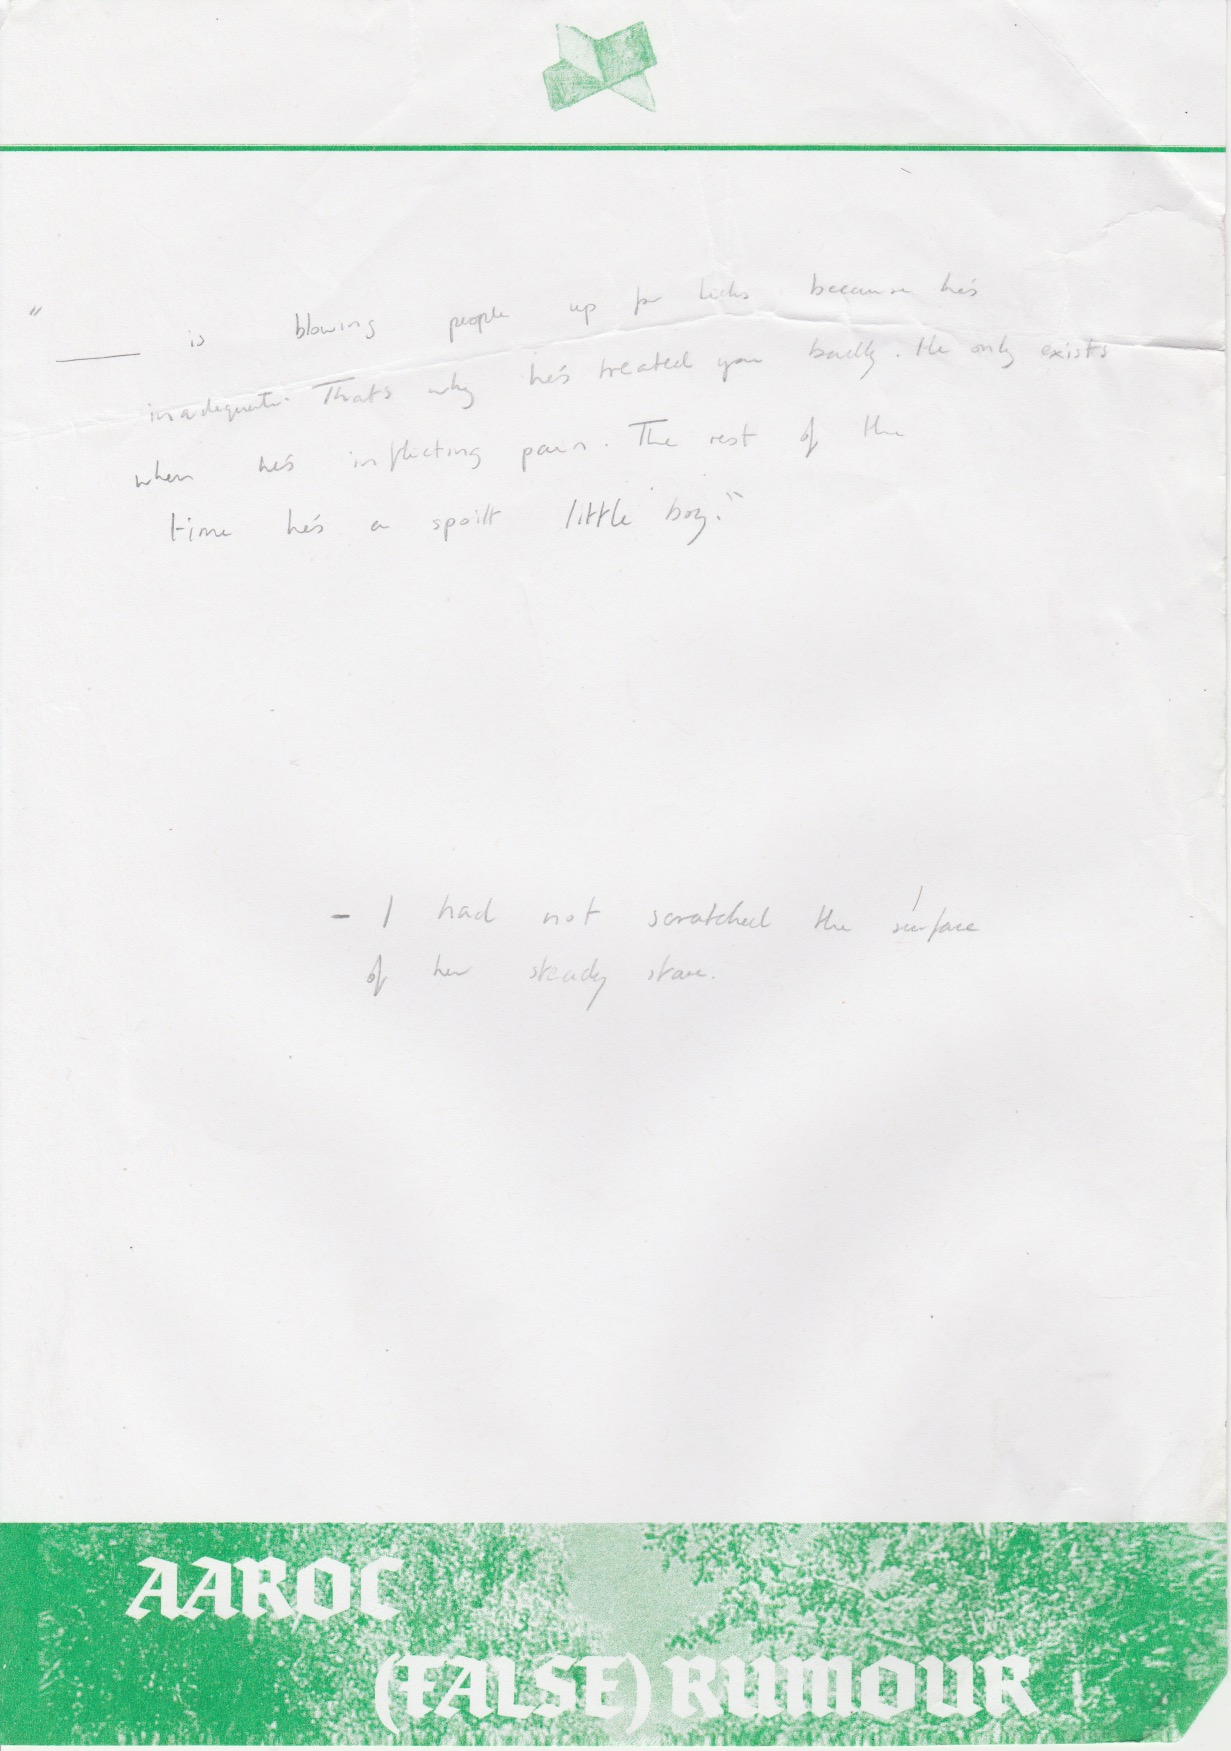 "
_____ is blowing people up for kicks because he's
inadequate. That's why he's treated you badly. He only exists
when he's inflicting pain. The rest of the
time he's a spoilt little boy."
- I had not scratched the surface
of her steady stare.
AAROC
(FALSE) RUMOUR